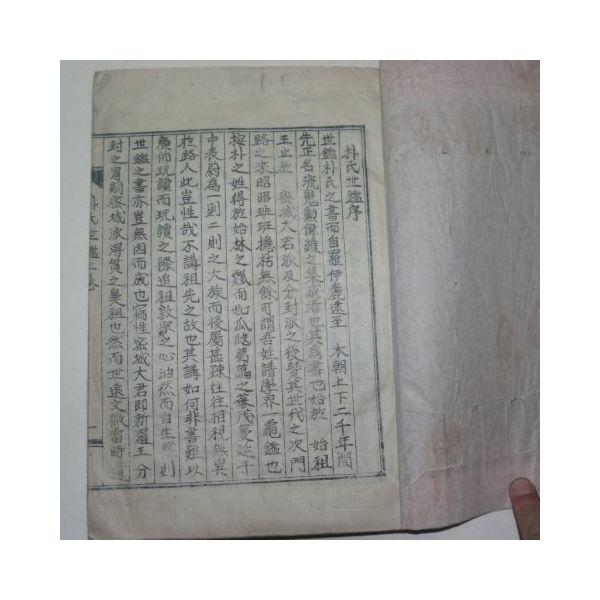 朴氏世鑑序
世鑑朴氏之書而自羅伊麗逮至 本朝上下二千年間
先正名流 動 之集成者也其爲書也始於 始祖
王止於 密城大君派及分封派之後 其世代之次門
路之 昭昭班班 無餘可謂吾姓譜學界一龜鑑也
朴之姓得於始林之瓢而如瓜 葛藟之 茂蔓延于
中表蔚爲一則二則之大族而後屬甚疎往往相視無異
於路人此豈性哉不講祖先之故也其講如何非書難以
廣佈玩讀而玩讀之際追祖敦宗之心油然而自生然則
世鑑之書亦豈無因而成也竊惟密城大君即新羅王分
封之胃嗣密城派得貫之鼻祖也然而世遠文微當時
朴氏世鑑 卷
一